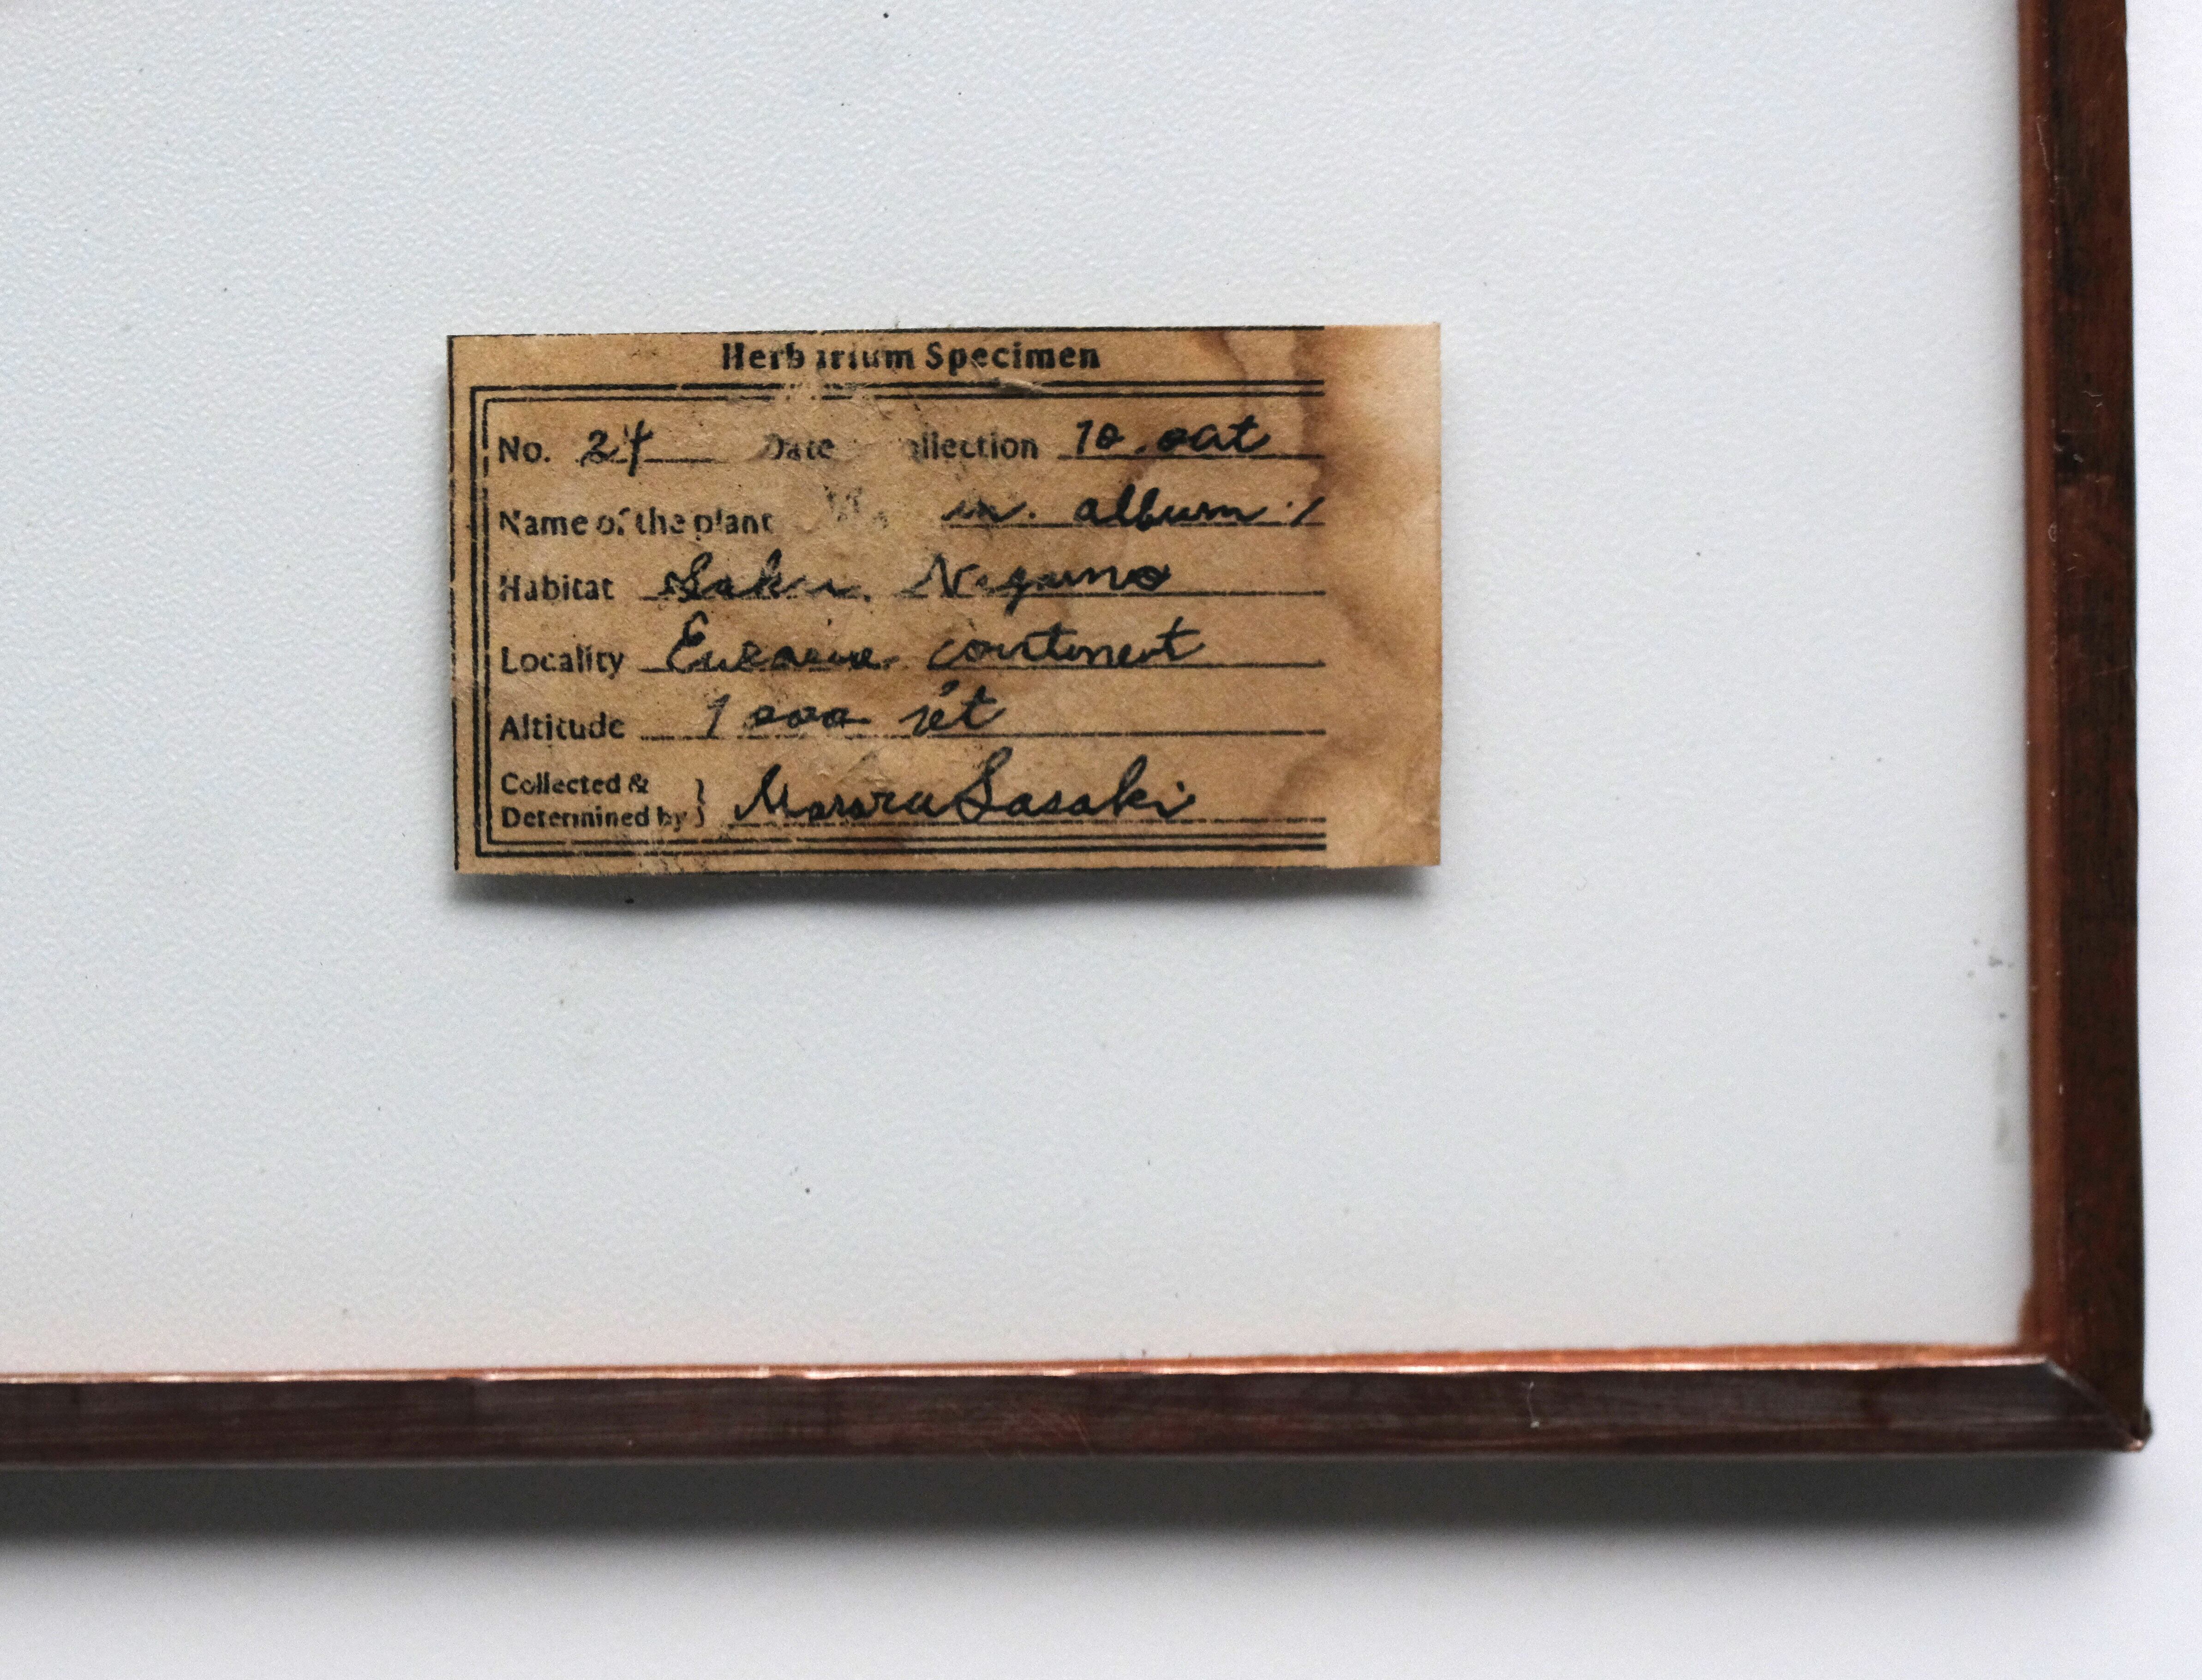 Herbarium Specimen
No. 24 Date Collection 10. oct
Name of the plant album
Habitat Saku, Nagano
Locality continent
Altitude 1000
Collected &
Determined by } Sasaki